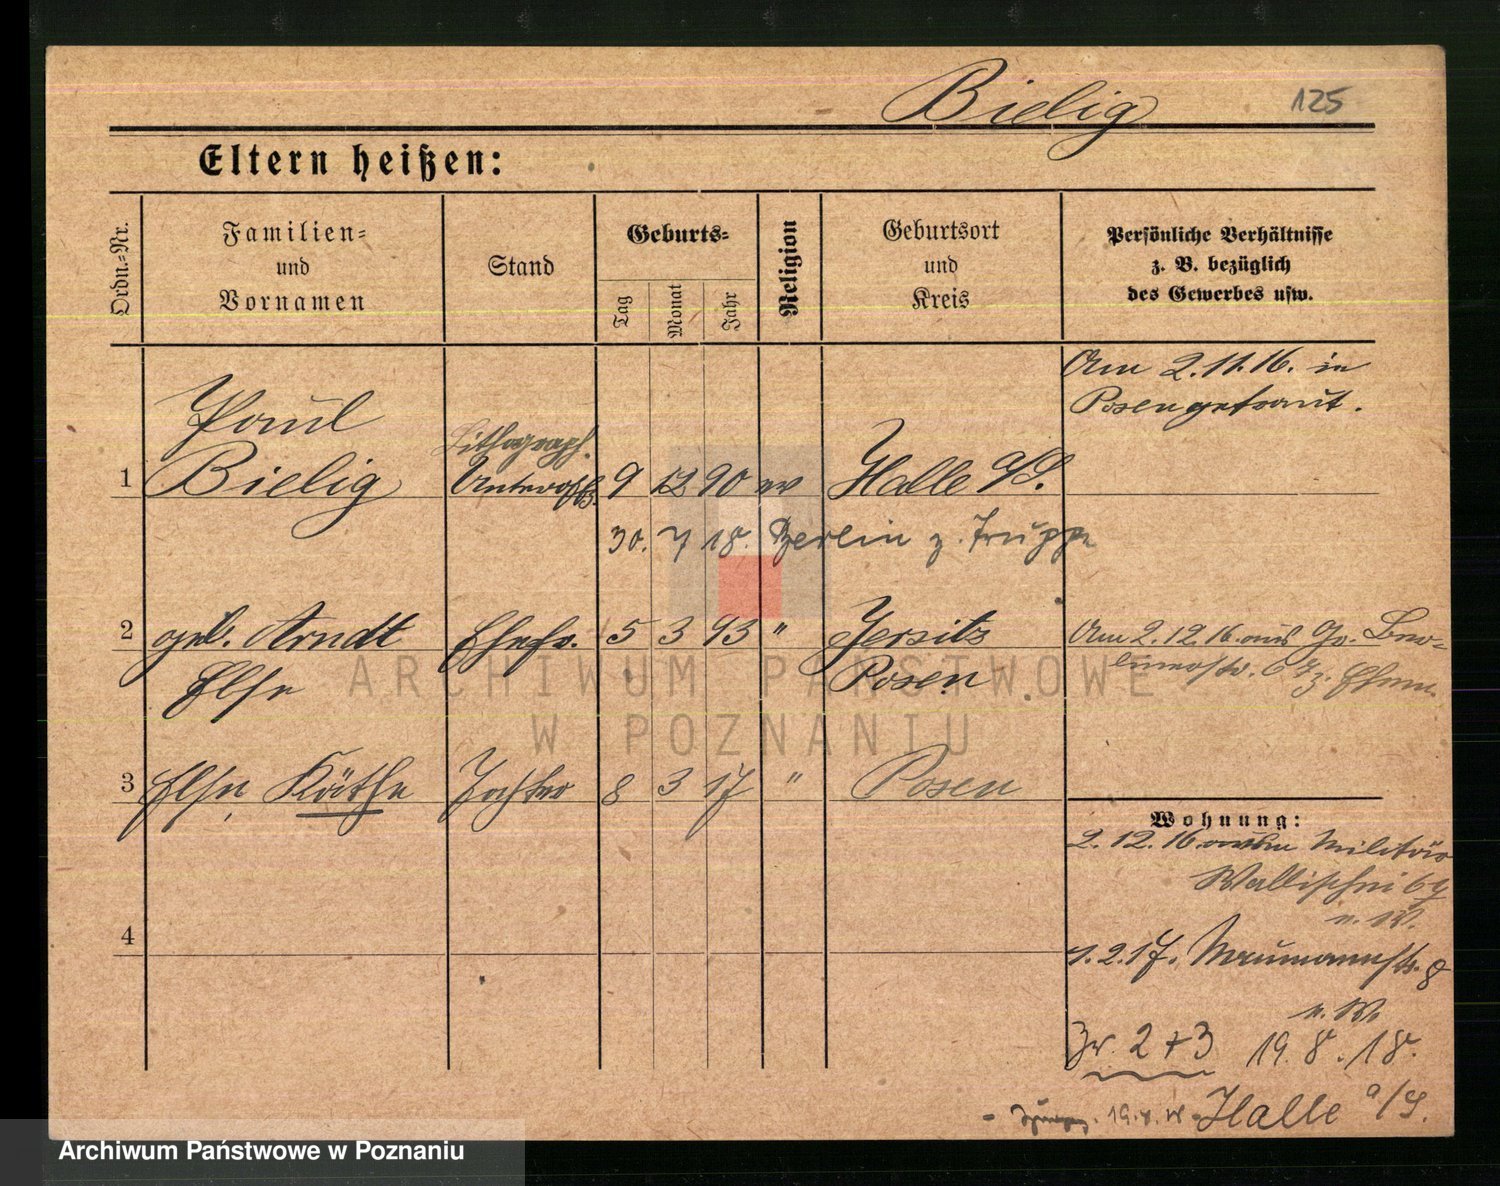 Bielig 125
Eltern heißen:
Ordn.-Nr.
Familien-
und
Vornamen
Stand
Geburts-
Tag
Monat
Jahr
Religion
Geburtsort
und
Kreis
Persönliche Verhältnisse
z. B. bezüglich
des Gewerbes usw.
Am 2.11.16. in
Posen getraut.
Paul
Lithograph.
1 Bielig Unteroffz. 9 12 90 ev Halle a/S.
30. 7 18. Berlin z. Truppe
2 geb. Arndt Ehefr. 5 3 93 " Jersitz
Else Posen
Am 2.12.16. aus Gr.
z. Ehem.
3 Else, Käthe Tochter 8 3 17 " Posen
Wohnung:
2.12.16 Militär
Wallischei 69
n. W.
4
1.2.17. Naumannstr. 8
n. W.
Zr. 2+3 19.8.18.
Halle a/S.
ARCHIWUM PAŃSTWOWE
W POZNANIU
Archiwum Państwowe w Poznaniu